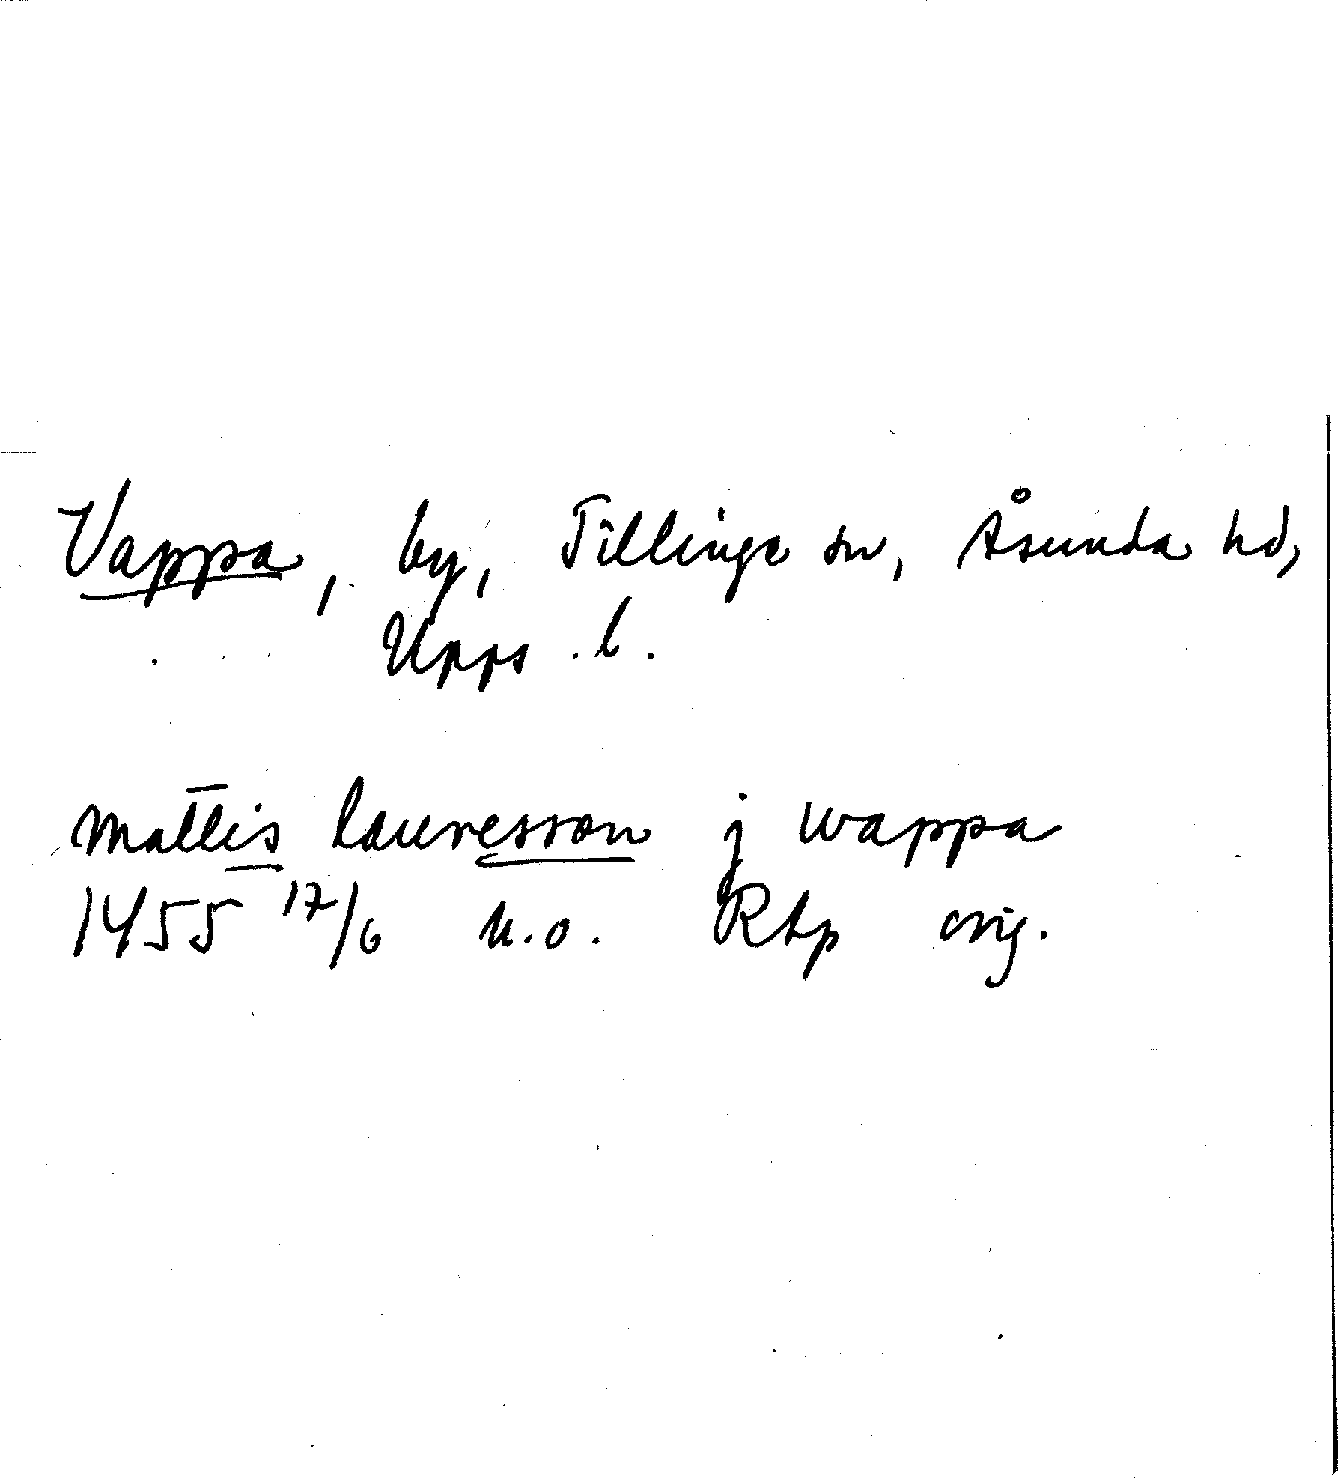 Vappa, by, Tillinge sn, Åsunda hd,
Upps. l.
mattis lauresson j wappa
1455 17/6 u.o. RAp orig.